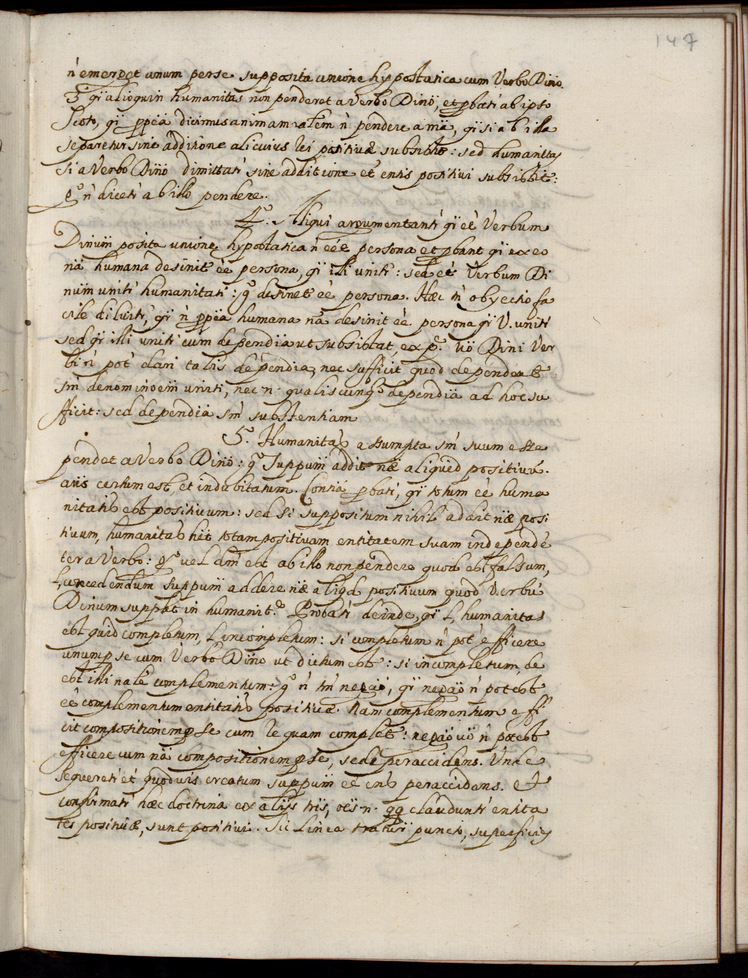 147
n̄ emerget unum per se supposita unione hypostatica cum Verbo Diño.
3º. qī alioquin humanitas non penderet a Verbo Diño, et pbatī ab ipso
Scoto, qī ppea dicimus animam nālem n̄ pendere a mā, qī si ab illa
separetur sine additione alicuius rei positivæ subsistit: sed humanitas
si a Verbo Diño dimittatī sine additione et entis positivi subsistit:
gº n̄ dicetī ab illo pendere.
4º. Aliqui argumentantī qī et Verbum
Divinū posita unione hypostatica n̄ eēt persona et pbant qī ex eo
nā humana desinit eē persona, qī illi unitī: sed et Verbum Di
num unitī humanitati: gº desinet eē persona. Hæc tn̄ obiectio fa
cile diluitī, qī n̄ ppea humana nā desinit eē persona qī V. unitī
sed qī illi unitī cum dependīa ut subsistat, ex pe. uō Diñi Ver
bi n̄ pot dari talis dependīa, nec sufficit quod dependeat
sm̄ denominōem uniti, nec .n. qualiscunq dependīa ad hoc su
fficit: sed dependīa sm̄ substentiam
5º. Humanitas assumpta sm̄ suum esse
pendet a Verbo Diño: gº suppum̄ addit næ aliquid positivū.
ans certum est, et indubitatum. Conña pbatī, qī totum eē huma
nitatis est positivum: sed si suppositum nihil addit næ posi
tivum, humanitas het totam positivam entitatem suam independē
ter a Verbo: gº vel dm̄ est ab illo non pendere quod est falsum,
l, concedendum suppum̄ addere næ aliqd positivum quod Verbū
Dinum supplet in humanite. Probatī deinde, qī l, humanitas
est quid completum, l, incompletum: si completum n̄ pot efficere
unum p se cum Verbo Diño ut dictum est: si incompletum, de
est illi nāle complementum: gº n̄ tm̄ negāo, qī negāo n̄ potest
eē complementum entitatis positivæ. Nam complementum effi
cit compositionem p se cum re quam complet: negāo uō n̄ potest
efficere cum nā compositionem p se, sed per accidens. Unde
sequeretī et quodvis creatum suppum̄ eē ens per accidens. Et
confirmatī hæc doctrina ex alijs tris, oēs .n. qq claudunt entita
tes positivæ, sunt positivi. Sic linea punct, superficies